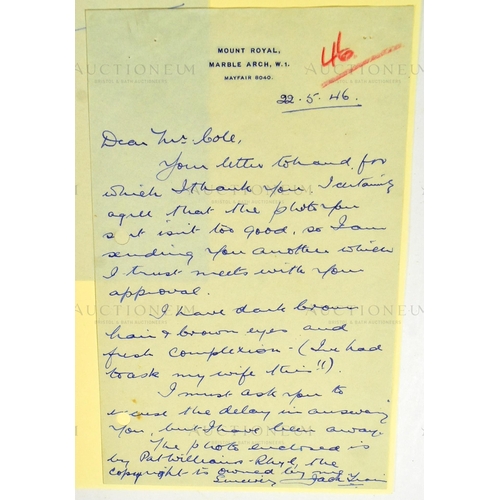 MOUNT ROYAL,
MARBLE ARCH, W.1.
MAYFAIR 8040.
46
22.5.46.
Dear Mr Cole,
Your letter to hand, for
which I thank you. I certainly
agree that the photo you
s t isn't too good, so I am
sending you another which
I trust meets with your
approval.
I have dark brown
hair & brown eyes and
fresh complexion - (I've had
to ask my wife this!!).
I must ask you to
e cuse the delay in answering
you, but I have been away.
The photo enclosed is
by Pat Williams - Rhyl, the
copyright is owned by me
Sincerely Jack Train
AUCTIONEUM